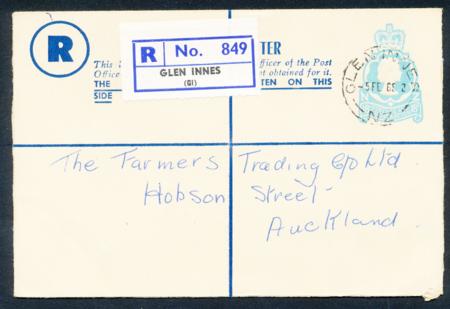 R
R No. 849
GLEN INNES
(GI)
TTER
This
Officer of the Post
Office
not obtained for it.
THE
TEN ON THIS
SIDE
GLEN INNES
-5 FE 68 2
NZ
The Farmers Trading Co Ltd.
Hobson Street
Auckland.